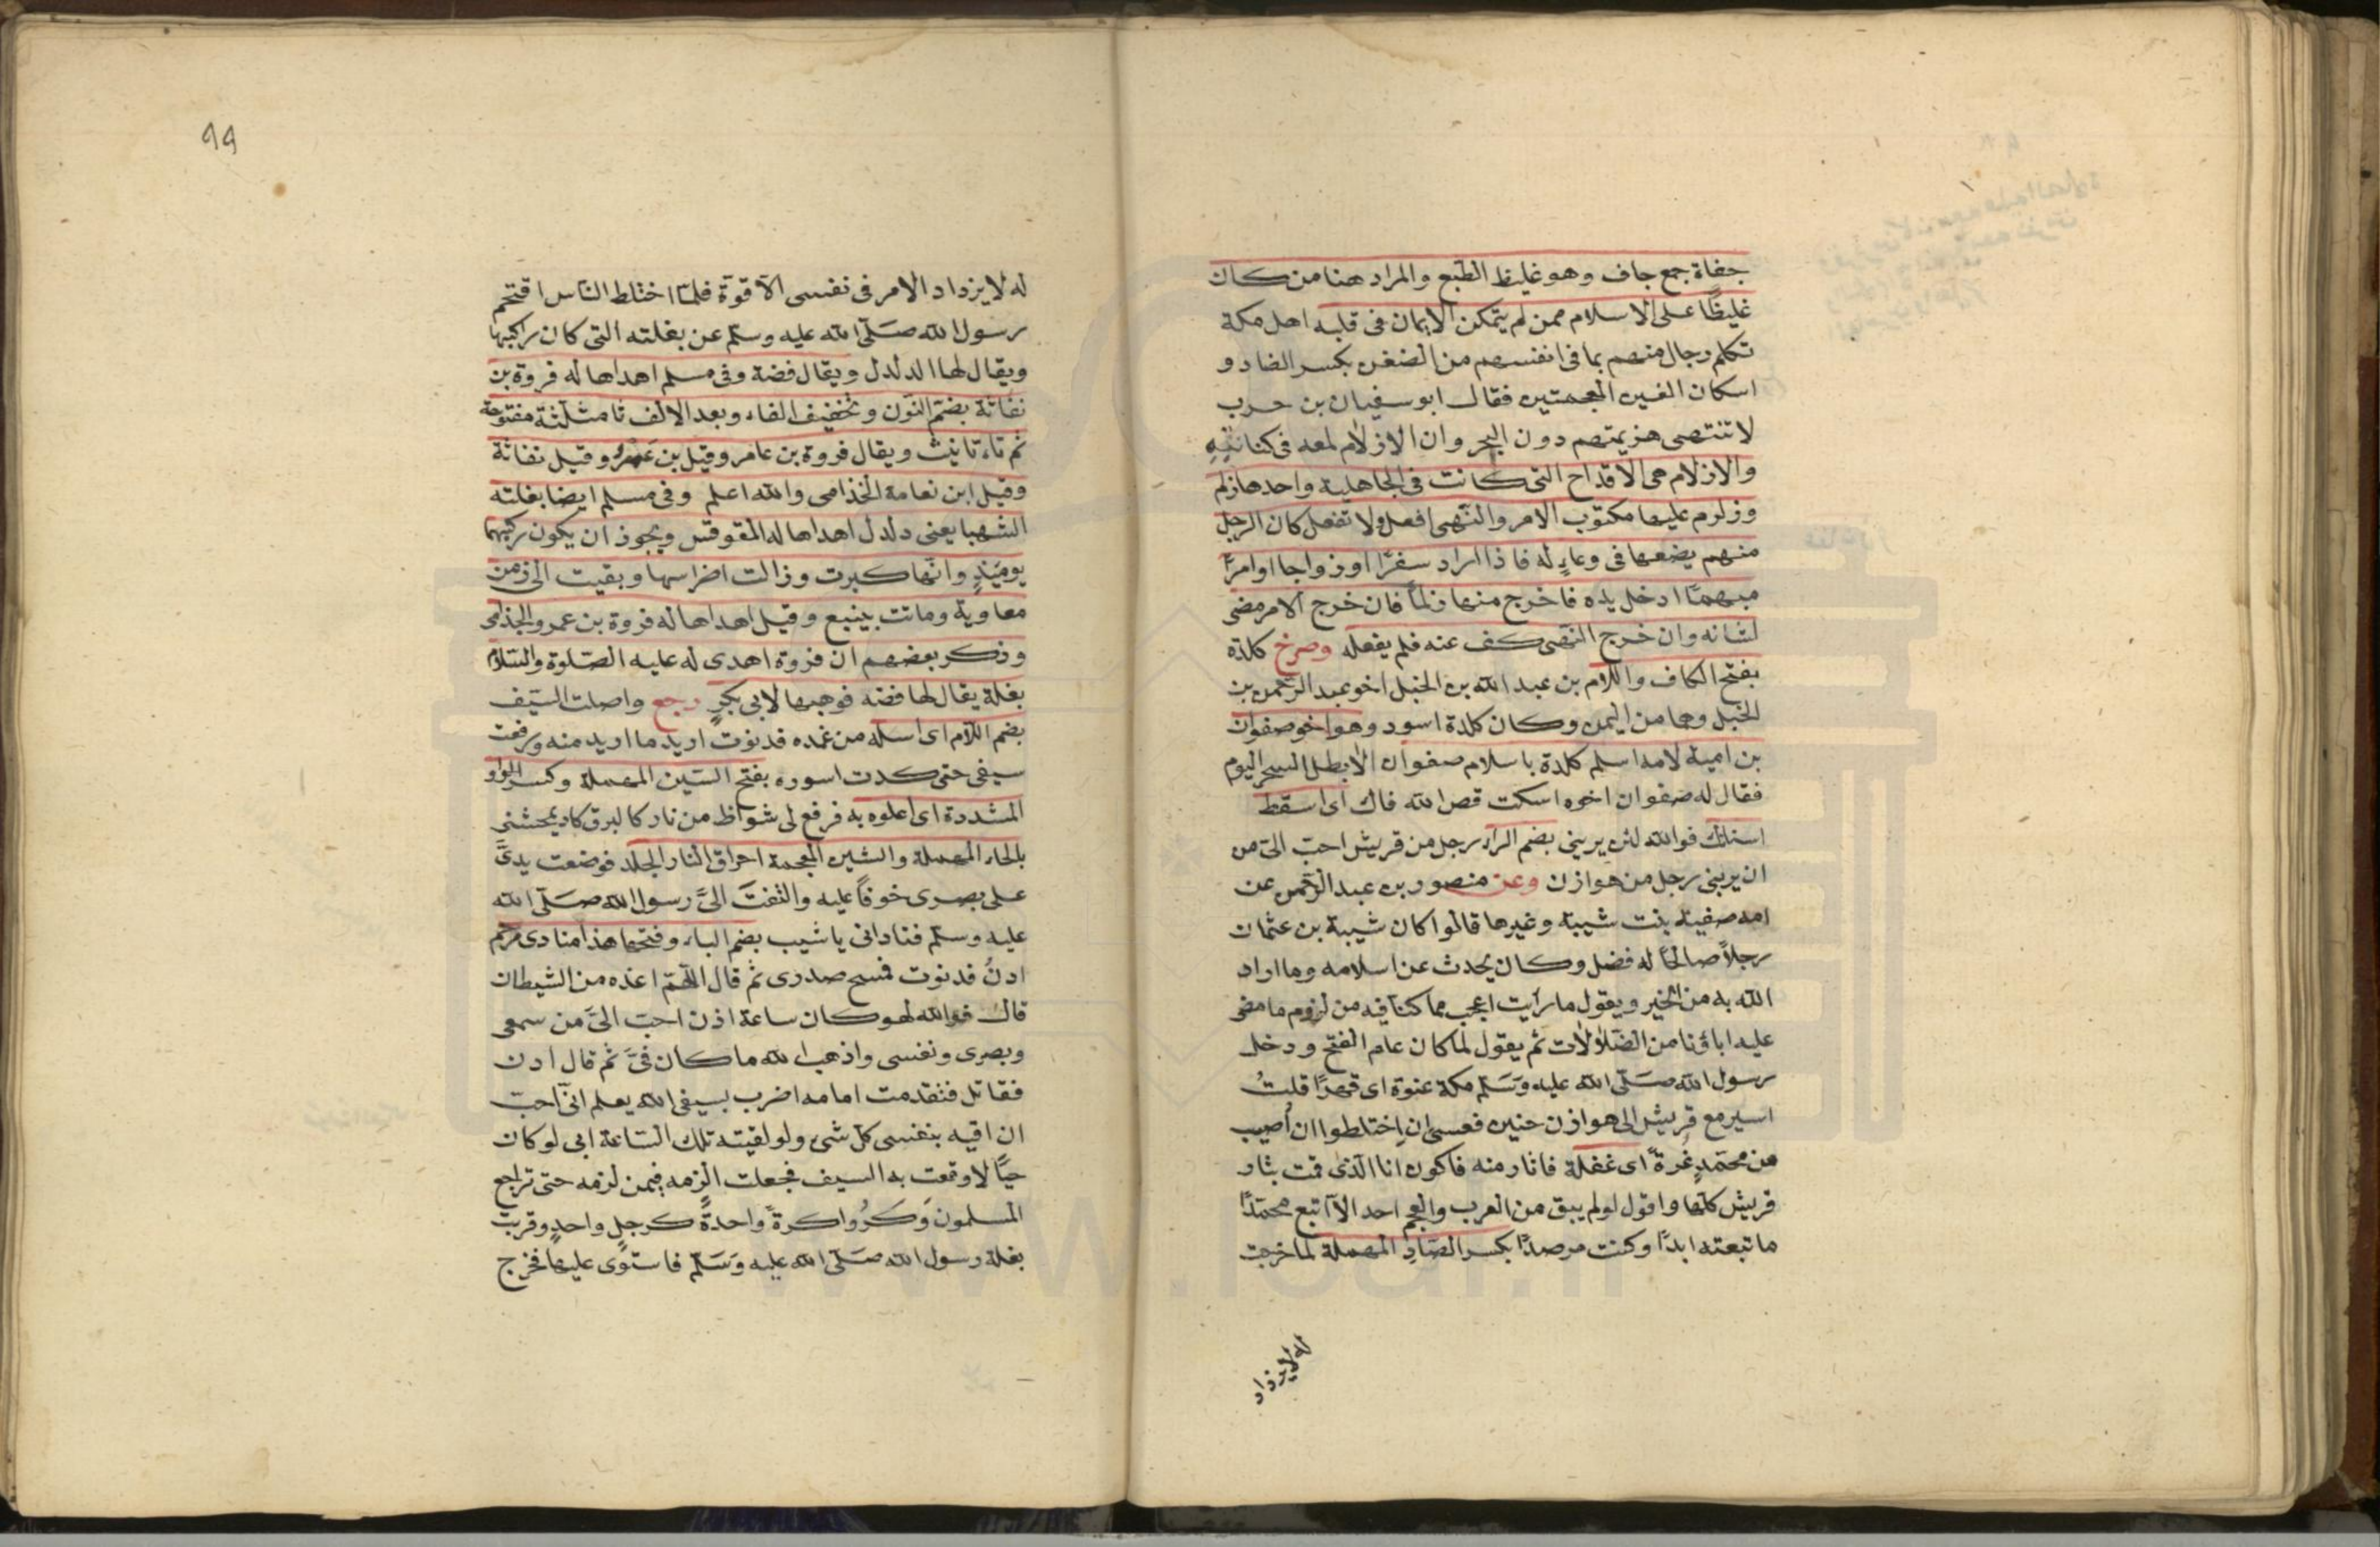 جفاة جمع جاف وهو غليظ الطبع والمراد هنا من كان
غليظًا على الاسلام ممن لم يتمكن الايمان في قلبه اهل مكة
تكلم رجال منهم بما في انفسهم من الضغن بكسر الضاد و
اسكان الغين المعجمتين فقال ابو سفيان بن حرب
لا تنتهى هزيمتهم دون البحر وان الازلام لمعه في كنانته
والازلام هى الاقداح التى كانت في الجاهلية واحدها زلم
وزلم عليها مكتوب الامر والنهى افعل ولا تفعل كان الرجل
منهم يضعها في وعاء له فاذا اراد سفرًا او زواجا او امرًا
مبهمًا ادخل يده فاخرج منها زلمًا فان خرج الامر مضى
لشانه وان خرج النهى كف عنه فلم يفعله وصرخ كلدة
بفتح الكاف واللام بن عبد الله بن الحنبل اخو عبد الرحمن بن
الحنبل وهما من اليمن وكان كلدة اسود وهو اخو صفوان
بن امية لامه اسلم كلدة باسلام صفوان الا بطل السحر اليوم
فقال له صفوان اخوه اسكت فض الله فاك اى اسقط
اسنانك فوالله لئن يربنى بضم الراء رجل من قريش احب الىّ من
ان يربنى رجل من هوازن وعن منصور بن عبد الرحمن عن
امه صفية بنت شيبة وغيرها قالوا كان شيبة بن عثمان
رجلاً صالحًا له فضل وكان يحدث عن اسلامه وما اراد
الله به من الخير ويقول ما رايت اعجب مما كنا فيه من لزوم ما مضى
عليه اباؤنا من الضلالات ثم يقول لما كان عام الفتح ودخل
رسول الله صلّى الله عليه وسَلّم مكة عنوة اى قهرًا قلتُ
اسير مع قريش الى هوازن حنين فعسى ان اختلطوا ان اُصيب
من محمّدٍ غُرةً اى غفلة فاثار منه فاكون انا الذى قمت بثار
قريش كلها واقول لو لم يبق من العرب والعجم احد الا اتبع محمّدًا
ما تبعته ابدًا وكنت مرصدًا بكسر الصّادِ المهملة لما خرجت
له لا يزداد
٩٩
له لا يزداد الامر في نفسى الّا قوة فلمّا اختلط الناس اقتحم
رسول الله صَلّى الله عليه وسلّم عن بغلته التى كان راكبها
ويقال لها الدلدل ويقال فضة وفي مسلم اهداها له فروة بن
نفاثة بضمّ النّون وتخفيف الفاء وبعد الالف ثا مثلثة مفتوحة
ثم تاء تانيث ويقال فروة بن عامر وقيل بن عمرو وقيل نفاثة
وقيل ابن نعامة الخذامى والله اعلم وفى مسلم ايضا بغلته
الشهبا يعنى دلدل اهداها له المقوقس ويجوز ان يكون ركبهما
يومئذٍ وانّها كبرت وزالت اضراسها وبقيت الى زمن
معاوية وماتت بينبع وقيل اهداها له فروة بن عمرو الجذامى
وذكر بعضهم ان فروة اهدى له عليه الصّلوة والسّلام
بغلة يقال لها فضه فوهبها لابى بكرٍ رجع واصلت السّيف
بضم اللام اى اسله من غمده فدنوت اريد ما اريد منه ورفعت
سيفى حتى كدت اسوره بفتح السّين المهملة وكسر الواو
المشددة اى اعلوه به فرفع لى شواظ من نار كالبرق كاد يمحشنى
بالحاء المهملة والشين المعجمة احراق النار الجلد فوضعت يدىَّ
على بصرى خوفًا عليه والتفتَ الىَّ رسول الله صَلّى الله
عليه وسلّم فنادانى يا شيب بضم الباء وفتحها هذا منادى مرخم
ادنُ فدنوت فمسح صدرى ثم قال اللّهمّ اعذه من الشيطان
قال فوالله لهو كان ساعة اذن احبّ الىَّ من سمعى
وبصرى ونفسى واذهب الله ما كان فىَّ ثم قال ادن
فقاتل فتقدمت امامه اضرب بسيفى الله يعلم انّى احبّ
ان اقيه بنفسى كلّ شئ ولو لقيته تلك السّاعة ابى لو كان
حيًّا لاوقعت به السيف فجعلت الزمه فيمن لزمه حتى تراجع
المسلمون وَكَرُوا كرةً واحدةً كرجلٍ واحدٍ وقربت
بغلة رسول الله صَلّى الله عليه وَسَلّم فاستوى عليها فخرج